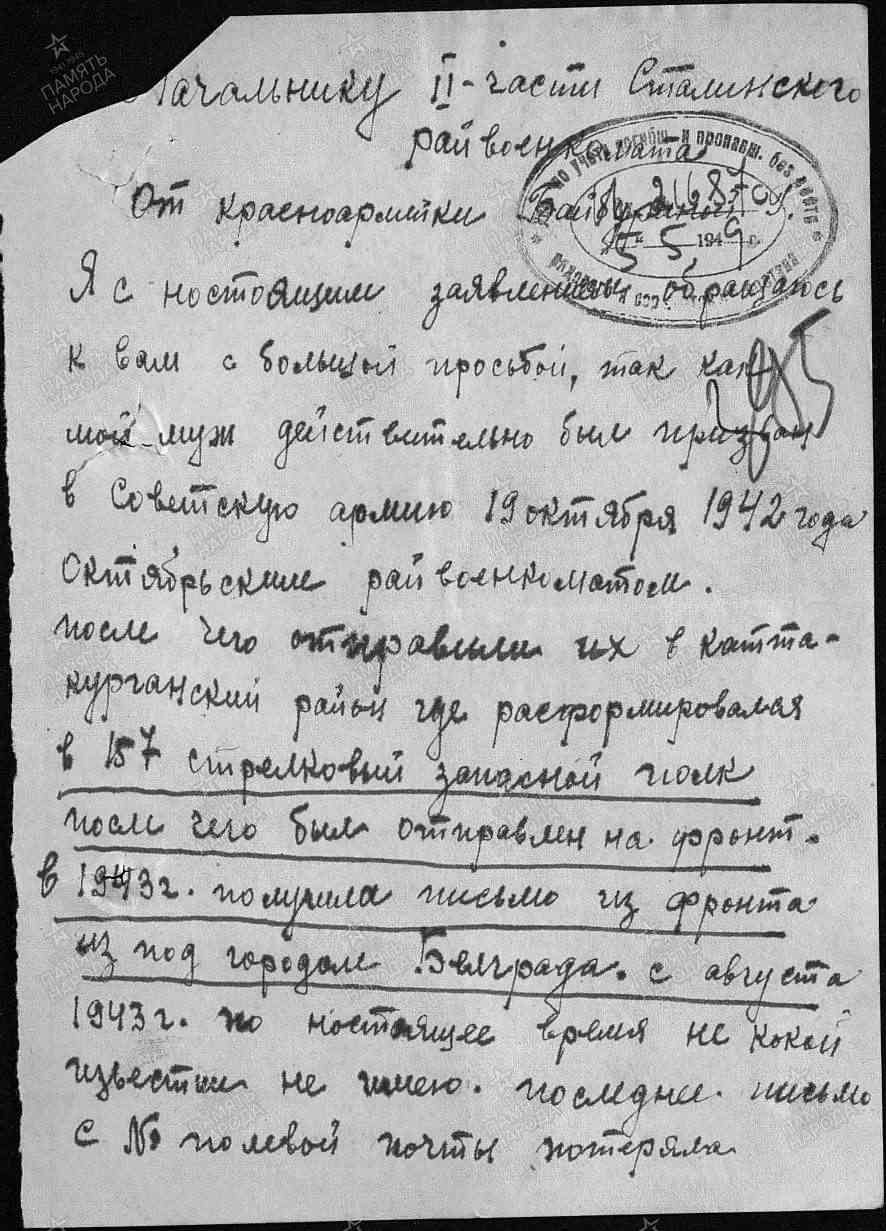 ПАМЯТЬ
НАРОДА
Начальнику II-части Сталинского
райвоенкомата
От красноармейки
по учету погибш. и пропавш. без вести
5 194 г.
Я с ностоящим заявлением обращаюсь
к вам с большой просьбой, так как
мой муж действительно был призван
в Советскую армию 19 октября 1942 года
Октябрьским райвоенкоматом.
после чего отправили их в катта-
курганский район где расформировался
в 157 стрелковый запасной полк
после чего был отправлен на фронт.
в 1943 г. получила письмо из фронта
из под городом Белграда. с августа
1943 г. по ностоящее время не кокой
известии не имею. последнее письмо
с № полевой почты потеряла